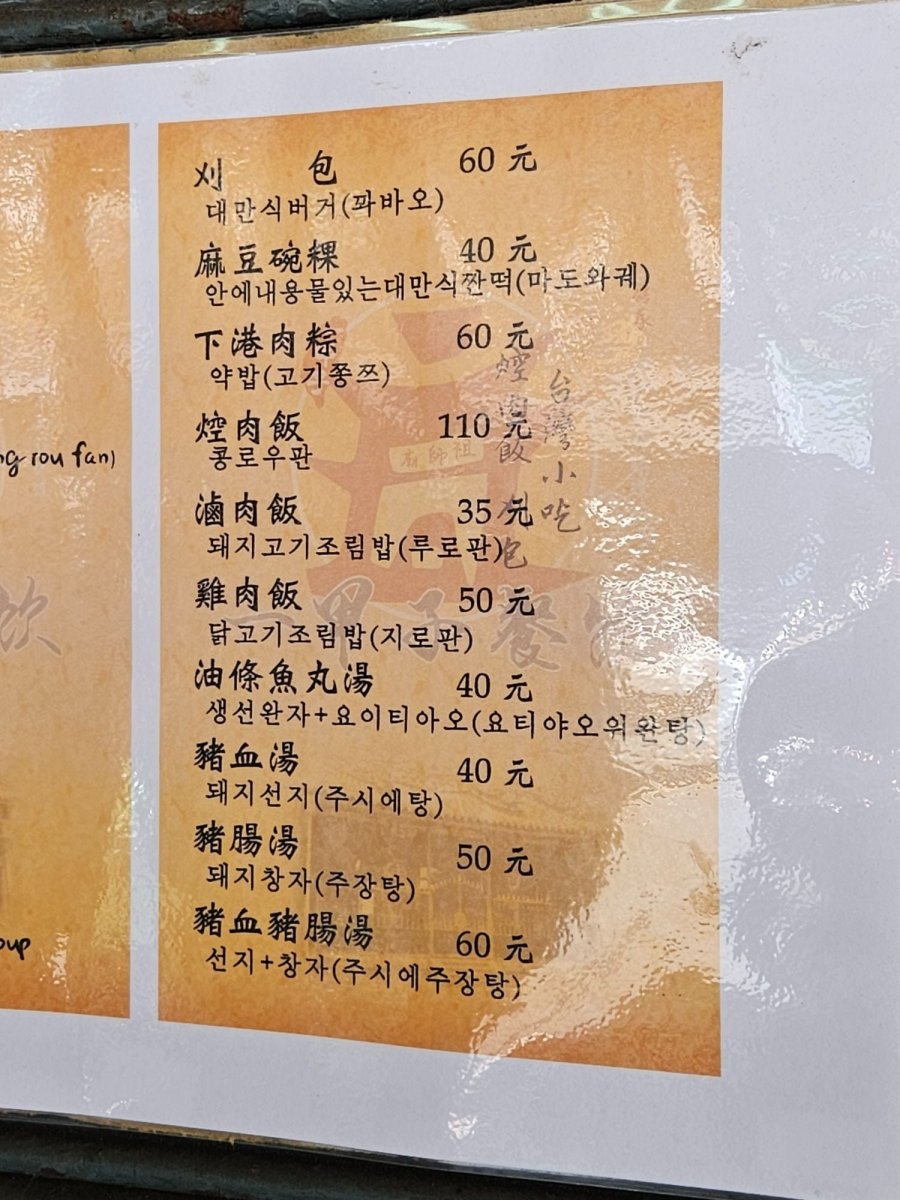 刈 包 60 元
대만식버거(꽈바오)
麻豆碗粿 40 元
안에내용물있는대만식짠떡(마도와궤)
下港肉粽 60 元
약밥(고기쫑쯔)
焢肉飯 110 元
콩로우판
滷肉飯 35 元
돼지고기조림밥(루로판)
雞肉飯 50 元
닭고기조림밥(지로판)
油條魚丸湯 40 元
생선완자+요이티아오(요티야오위완탕)
豬血湯 40 元
돼지선지(주시에탕)
豬腸湯 50 元
돼지창자(주장탕)
豬血豬腸湯 60 元
선지+창자(주시에주장탕)
台灣小吃
焢肉飯 刈包
祖師廟
一甲子餐飲
rou fan)
飲